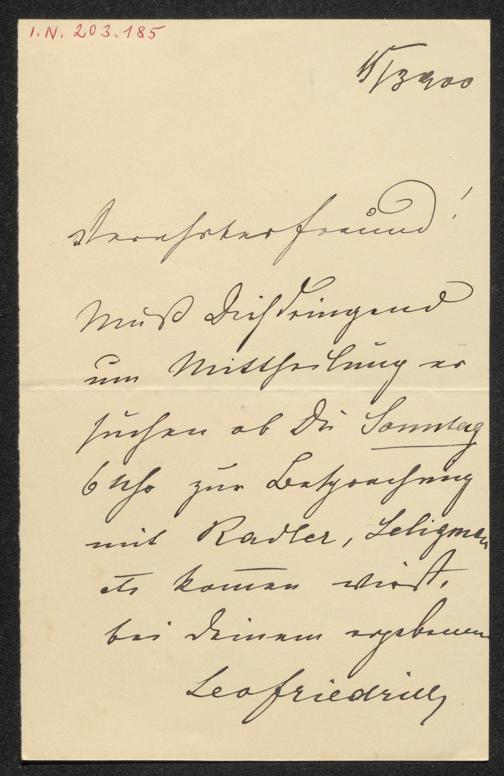 I.N. 203.185
15/3 900
Verehrter Freund!
Muß Dich dringend
um Mittheilung er
suchen ob Du Sonntag
6 Uhr zur Besprechung
mit Radler, Seligman
etc kom̄en wirst,
bei Deinem ergebenen
Leo Friedrich